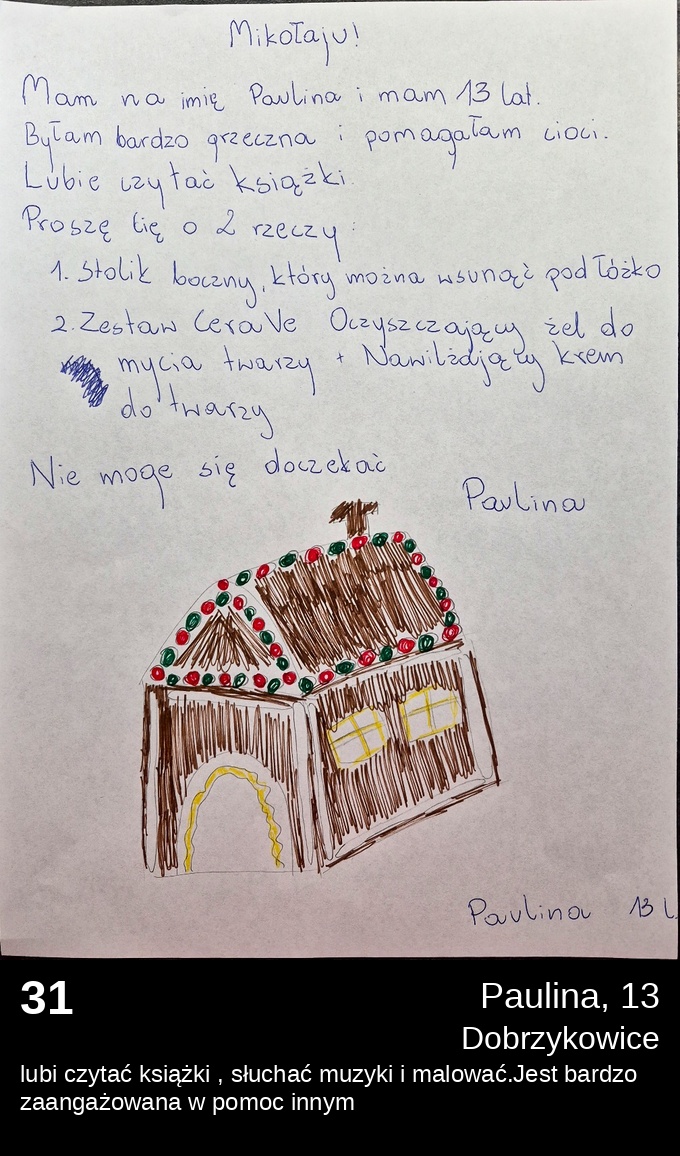 Mikołaju!
Mam na imię Paulina i mam 13 lat.
Byłam bardzo grzeczna i pomagałam cioci.
Lubie czytać książki.
Proszę Cię o 2 rzeczy:
1. Stolik boczny, który można wsunąć pod łóżko
2. Zestaw CeraVe Oczyszczający żel do
mycia twarzy + Nawilżający krem
do twarzy
Nie moge się doczekać
Paulina
Paulina 13 l.
31
Paulina, 13
Dobrzykowice
lubi czytać książki , słuchać muzyki i malować.Jest bardzo
zaangażowana w pomoc innym